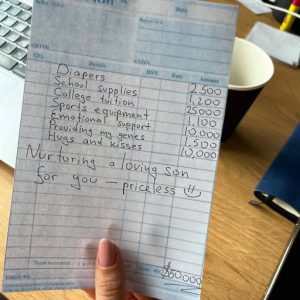 Date
Details
HSN
Rate
Amount
Diapers 2,500
School supplies 1,200
College tuition 25000
Sports equipment 1,100
Emotional support 10,000
Providing my genes 500
Hugs and kisses 10,000
Nurturing a loving son
for you — priceless
$50000